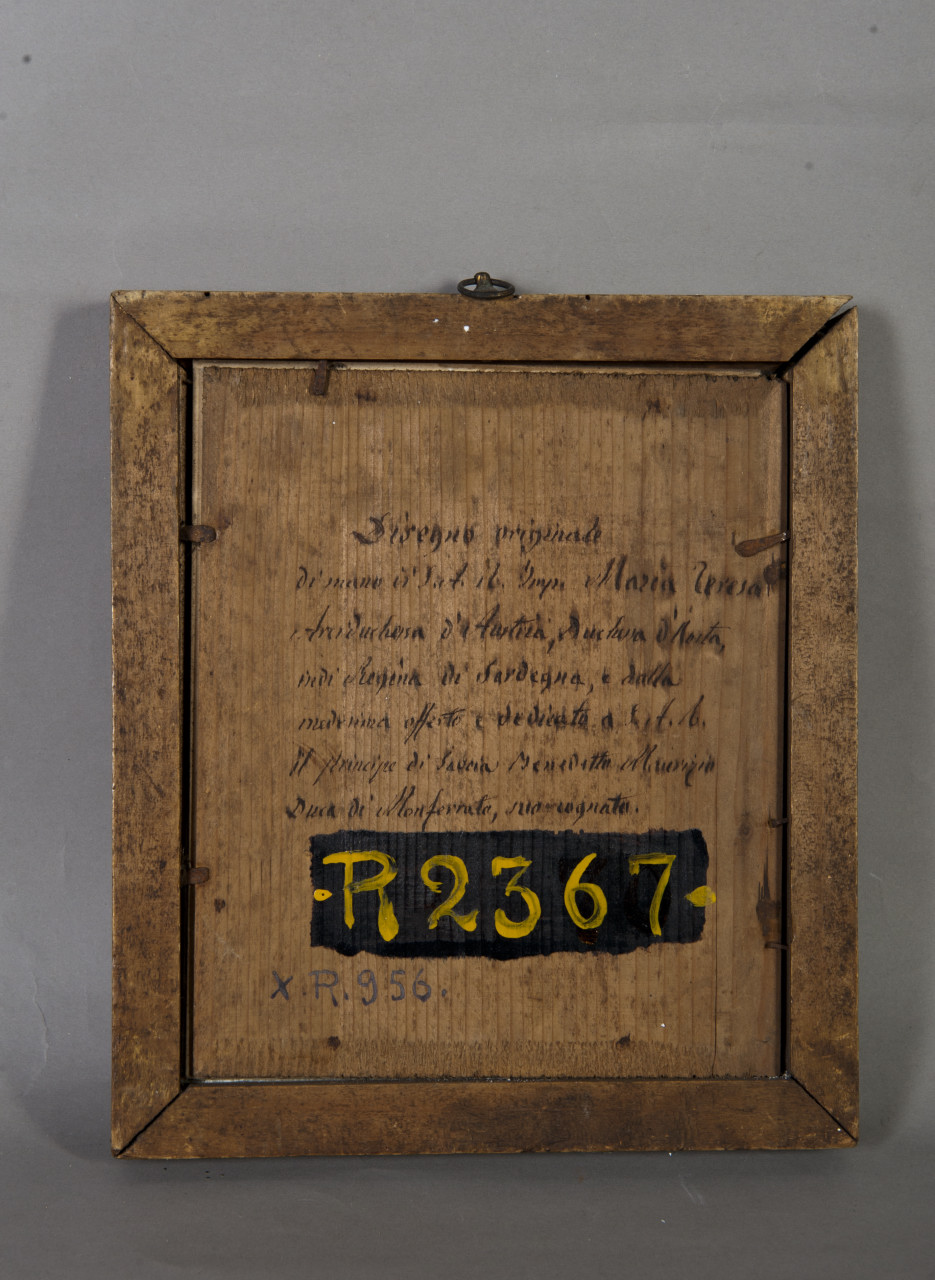 Disegno originale
di mano di S. A. R. Imp. Maria Teresa
Arciduchessa d'Austria, Duchessa d'Aosta,
indi Regina di Sardegna, e dalla
medesima offerto e dedicato a S. A. R.
il principe di Savoia Benedetto Maurizio
Duca di Monferrato, suo cognato.
·R2367·
X.R.956.